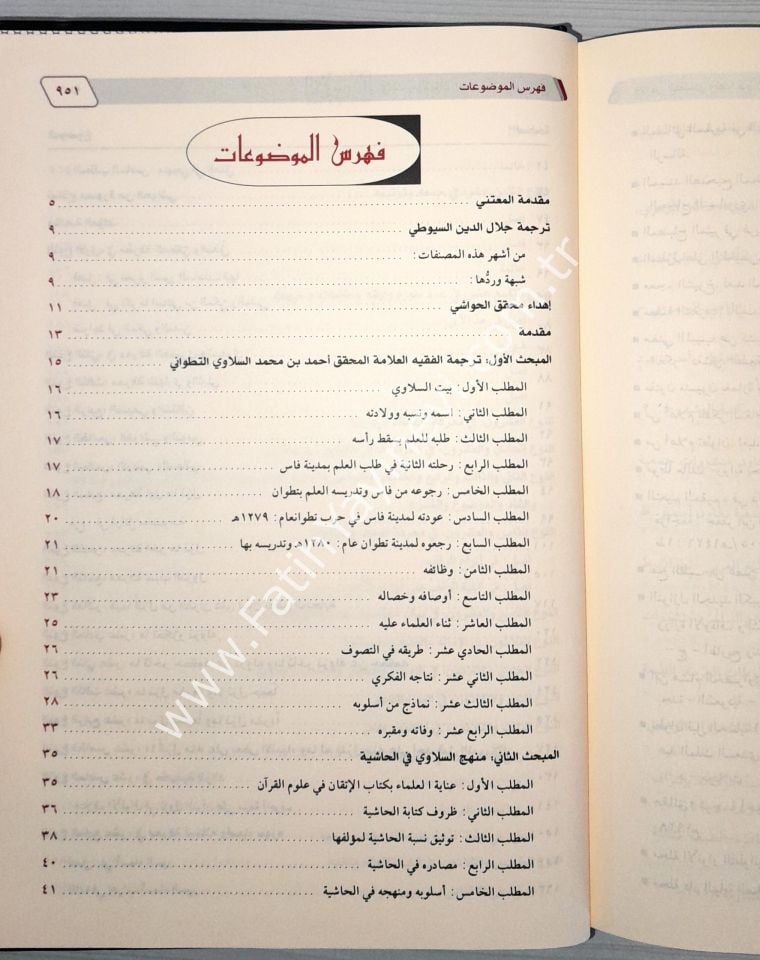 فهرس الموضوعات
٩٥١
فهرس الموضوعات
مقدمة المعتني ٥
ترجمة جلال الدين السيوطي ٩
من أشهر هذه المصنفات : ٩
شبهة وردُّها : ٩
إهداء محقق الحواشي ١١
مقدمة ١٣
المبحث الأول: ترجمة الفقيه العلامة المحقق أحمد بن محمد السلاوي التطواني ١٥
المطلب الأول : بيت السلاوي ١٦
المطلب الثاني : اسمه ونسبه وولادته ١٦
المطلب الثالث : طلبه للعلم بمسقط رأسه ١٧
المطلب الرابع : رحلته الثانية في طلب العلم بمدينة فاس ١٧
المطلب الخامس : رجوعه من فاس وتدريسه العلم بتطوان ١٨
المطلب السادس : عودته لمدينة فاس في حرب تطوانعام : ١٢٧٩هـ ٢٠
المطلب السابع : رجعوه لمدينة تطوان عام : ١٢٨٠هـ وتدريسه بها ٢١
المطلب الثامن : وظائفه ٢١
المطلب التاسع : أوصافه وخصاله ٢٣
المطلب العاشر : ثناء العلماء عليه ٢٥
المطلب الحادي عشر : طريقه في التصوف ٢٦
المطلب الثاني عشر : نتاجه الفكري ٢٦
المطلب الثالث عشر : نماذج من أسلوبه ٢٨
المطلب الرابع عشر : وفاته ومقبره ٣٣
المبحث الثاني: منهج السلاوي في الحاشية ٣٥
المطلب الأول : عناية العلماء بكتاب الإتقان في علوم القرآن ٣٥
المطلب الثاني : ظروف كتابة الحاشية ٣٦
المطلب الثالث : توثيق نسبة الحاشية لمؤلفها ٣٨
المطلب الرابع : مصادره في الحاشية ٤٠
المطلب الخامس : أسلوبه ومنهجه في الحاشية ٤١
www.FatihYayinevi.com.tr